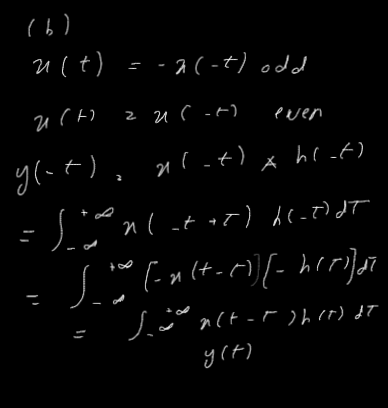 (b)
x(t) = -x(-t) odd
x(t) = x(-t) even
y(-t) = x(-t) * h(-t)
= ∫_{-∞}^{+∞} x(-t+τ) h(-τ) dτ
= ∫_{-∞}^{+∞} [-x(t-τ)][-h(τ)] dτ
= ∫_{-∞}^{+∞} x(t-τ) h(τ) dτ
y(t)